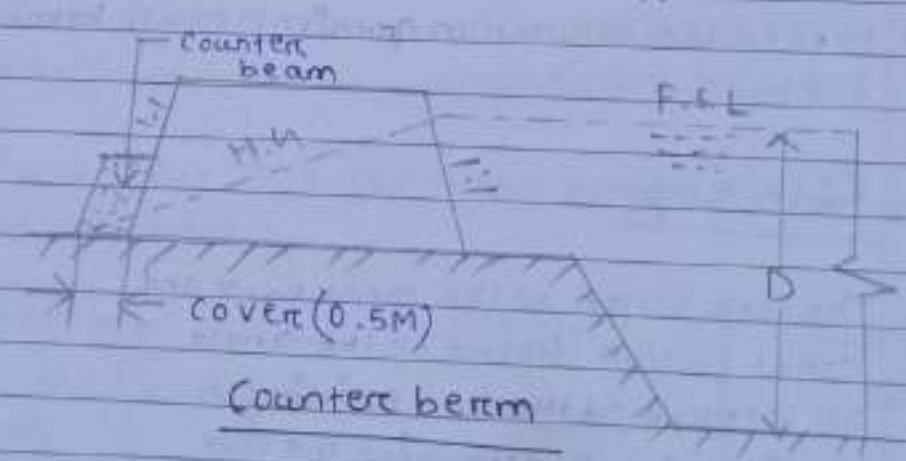 Counter
beam
F.S.L
H.G
D
Cover (0.5M)
Counter berm